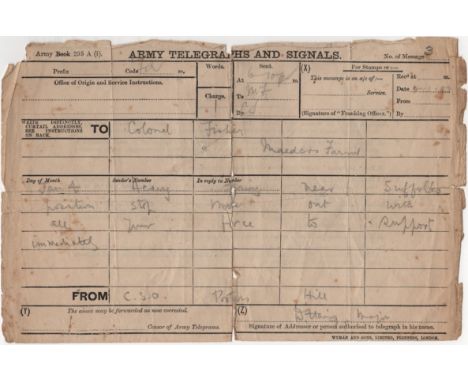 Army Book 295 A (I). ARMY TELEGRAPHS AND SIGNALS. No. of Message
Prefix Code m, Words. Sent. (X) For Stamps or :—
Office of Origin and Service Instructions. At This message is on a/c of :— Recd at
To Service. Date
Charge. From
By (Signature of "Franking Officer.") By
WRITE DISTINCTLY,
CURTAIL ADDRESSES,
SEE INSTRUCTIONS
ON BACK.
TO Colonel Fisher
" Maeders Farm
Day of Month Sender's Number In reply to Number
Jan 6 Heavy near Suffolks
position Stop Move out with
all Your force to support
immediately
FROM C.S.O. Porters Hill
(Y) The above may be forwarded as now corrected. (Z)
Censor of Army Telegrams. Signature of Addressor or person authorised to telegraph in his name.
WYMAN AND SONS, LIMITED, PRINTERS, LONDON.